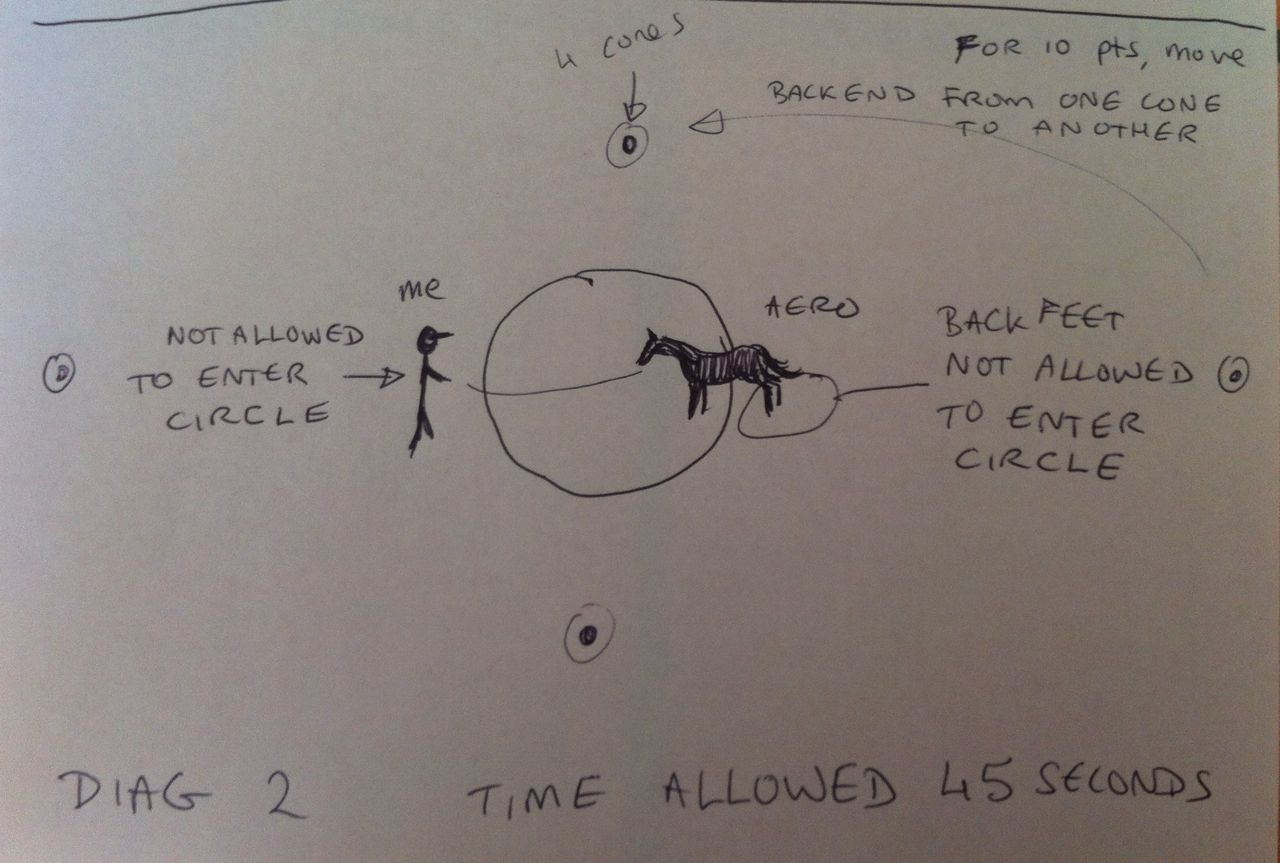 4 cones
FOR 10 pts, move
BACKEND FROM ONE CONE
TO ANOTHER
me
AERO
NOT ALLOWED
TO ENTER
CIRCLE
BACK FEET
NOT ALLOWED
TO ENTER
CIRCLE
DIAG 2
TIME ALLOWED 45 SECONDS